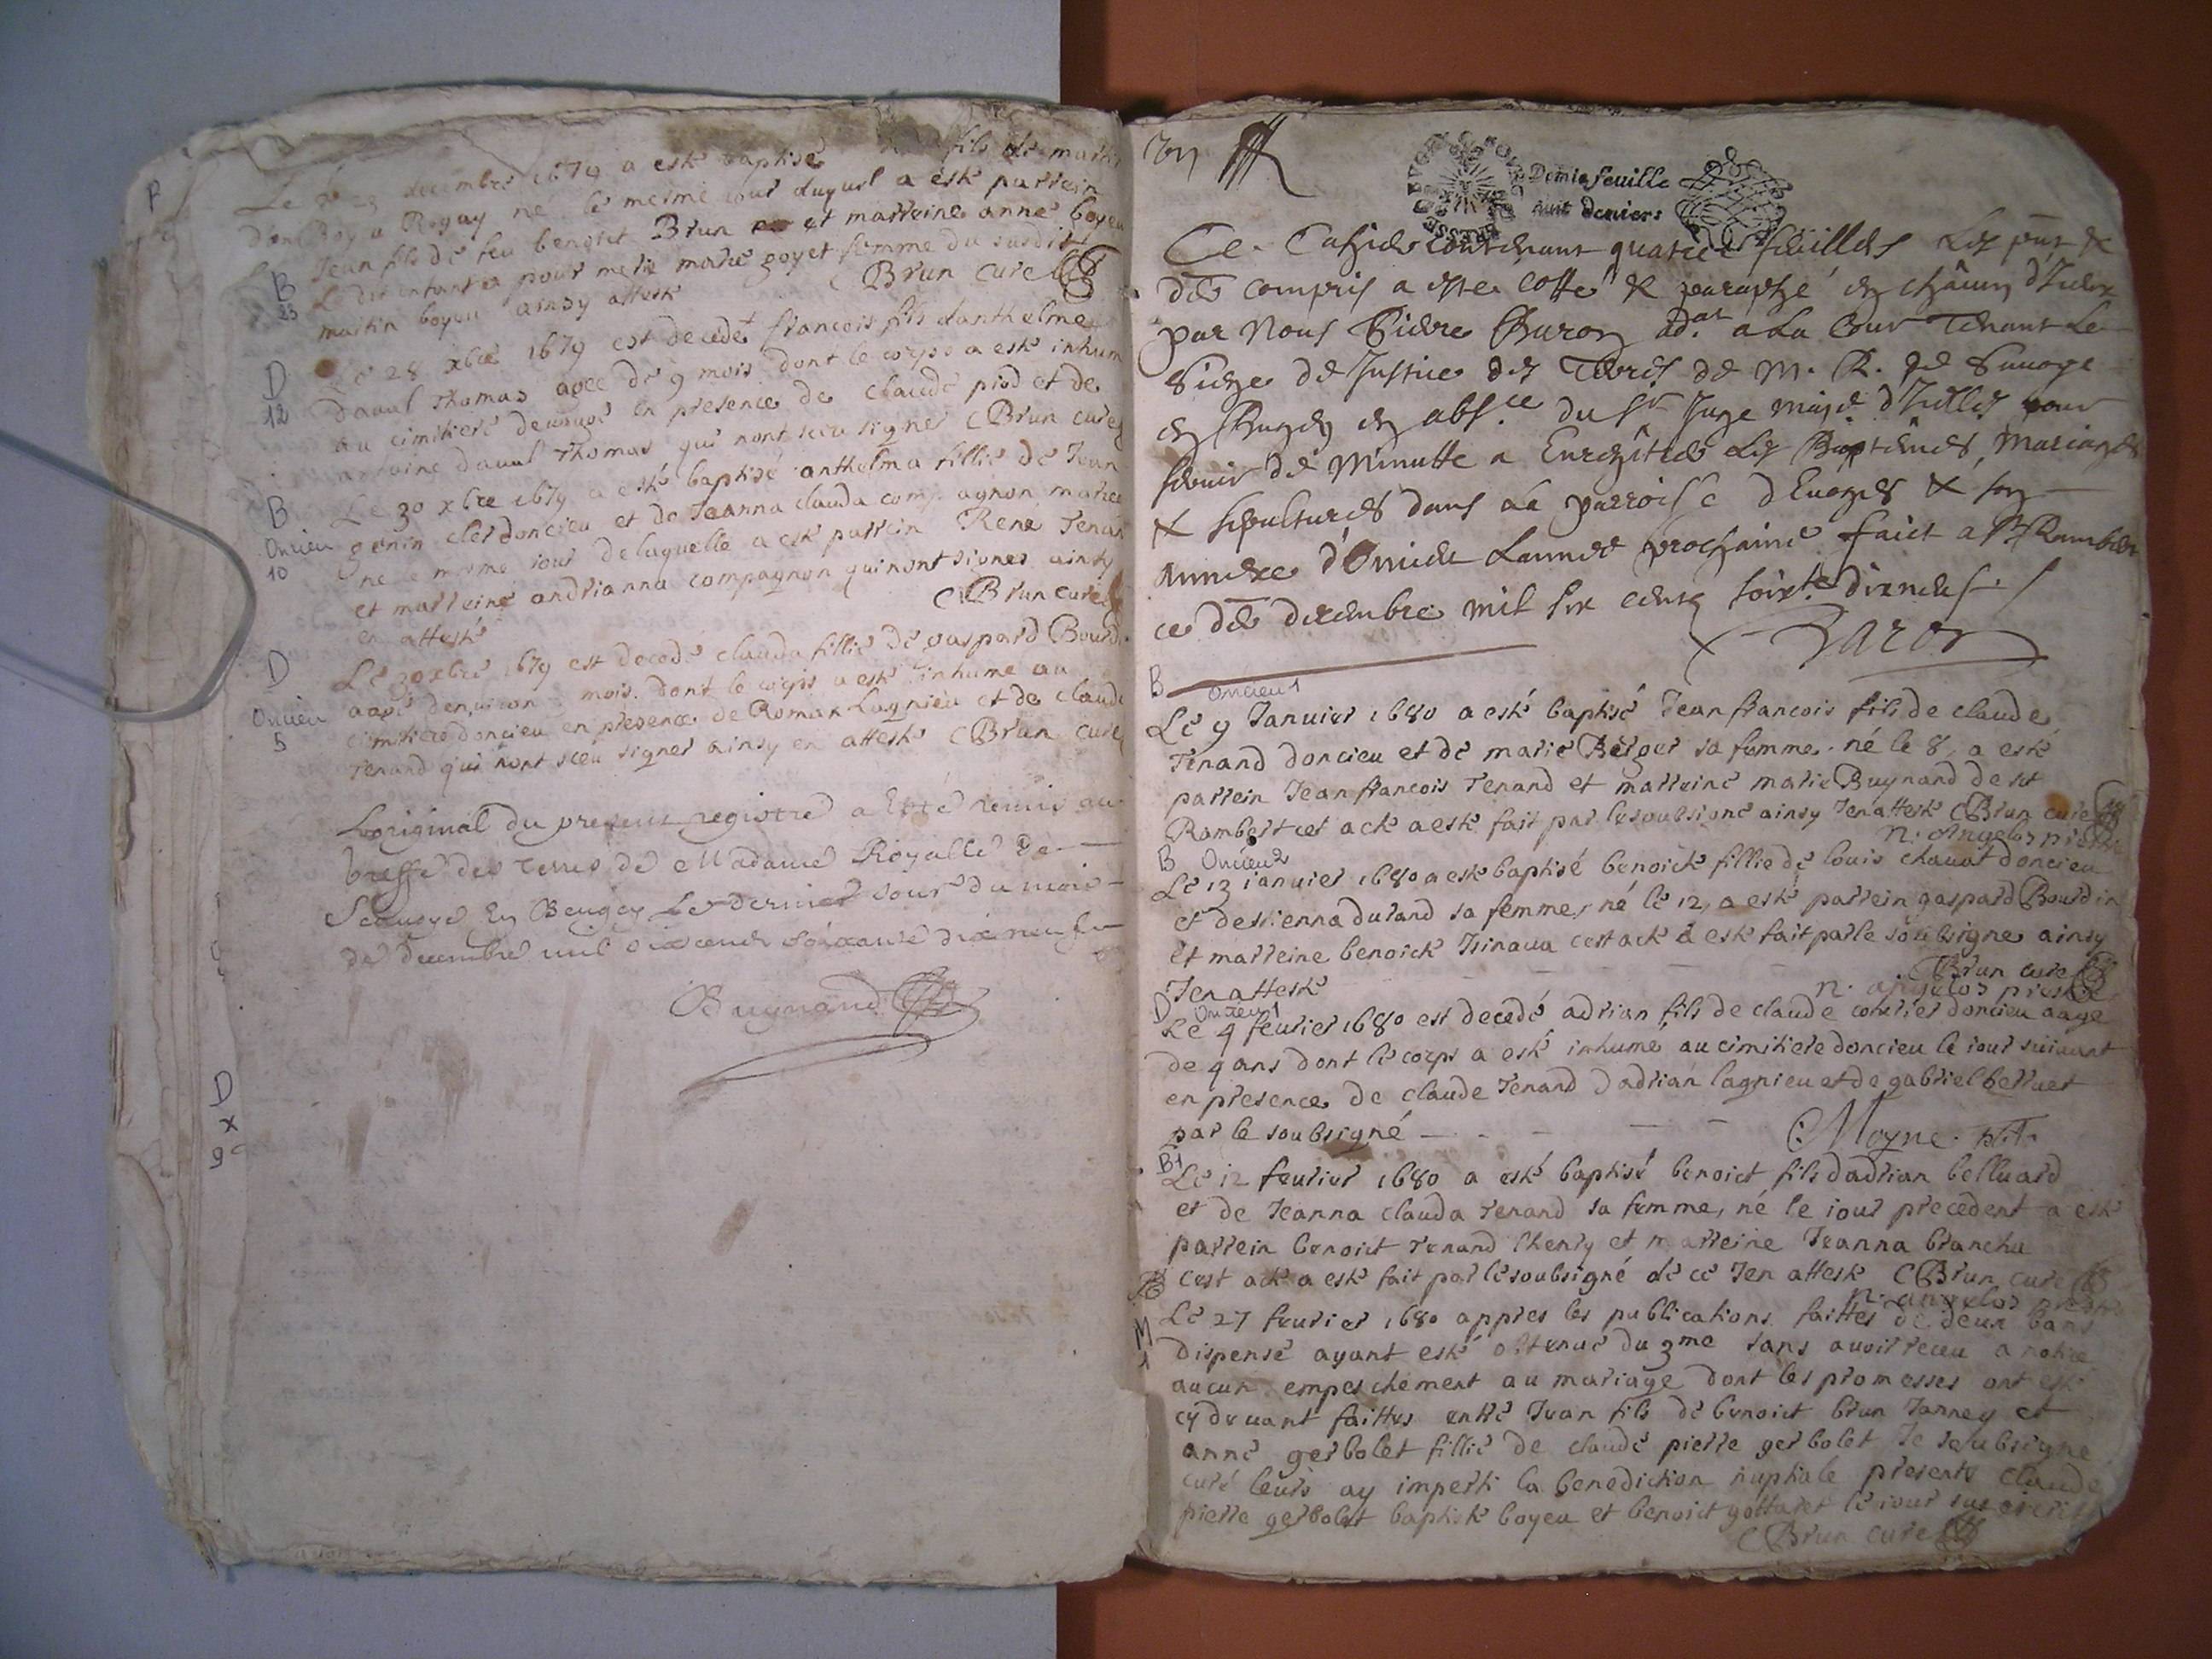 Le decembre 1679 a esté baptisé fils de martin
boyeu Rogay né le mesme iour duquel a esté parrein
Jean fils de feu benoict Brun et marreine anne boyeu
Le dit enfant a pour mere marie goyet femme du susdit
martin boyeu ainsy atteste C Brun curé
B
23
Le 28 xbre 1679 est decedé francois fils danthelme
daval thomas agee de 9 mois dont le corps a esté inhumé
au cimitiere en presence de claude et de
daval thomas qui nont sceu signer C Brun curé
D
12
Le 30 xbre 1679 a esté baptisé anthelma fillie de Jean
genin clet doncieu et de Jeanna clauda compagnon mariés
né le mesme iour de laquelle a esté parrein René Tenand
et marreine andrianna compagnon qui nont signer ainsy
en atteste C Brun curé
B
Oncieu
10
Le 30 xbre 1679 est decedé clauda fillie de gaspard Bourdin
aagé denviron 3 mois dont le corps a esté inhume au
cimitiere doncieu en presence de Roman Lagnieu et de claude
Tenand qui nont sceu signer ainsy en atteste C Brun curé
D
Oncieu
5
Loriginal du present registre a Esté remis au
greffe des terres de Madame Royalle de
Sauoye En Beugey Le dernier Jour du mois
de decembre mil six cents soixante dix neuf
Buynand
D
x
9
Demie feuille
huit deniers
Ce Cahier contenant quatorze feüilles Les pnt &
der compris a este cotté & paraphé en châcun d'Iceux
par Nous Pierre Baron ad.at a La Cour Tenant Le
Siege de Justice des Terres de M. R. de Sauoye
en Bugey en abs.ce du Sr Juge maje d'Icelles pour
seruir de Minutte a Enregîtrer Les Baptêmes, Mariages
& sepultures dans La parroisse d'Euoges & son
annexe d'Oncieu Lannee prochaine faict a St Rambert
ce decembre mil six cents soix.te dixneuf
Baron
B Oncieu 1
Le 9 Januier 1680 a esté baptisé Jean francois fils de claude
Tenand doncieu et de marie Berger sa femme. né le 8, a esté
parrein Jean francois Tenand et marreine marie Buynand de st
Rambert cet acte a esté fait par le soubsigné ainsy Jenatteste C Brun curé
n. angelot prestre
B Oncieu 2
Le 13 ianuier 1680 a esté baptisé benoicte fillie de louis chauat doncieu
et destienna durand sa femme, né le 12, a esté parrein gaspard Bourdin
et marreine benoicte cest acte a esté fait par le soubsigné ainsy
Jenatteste Brun curé
n. angelot prestre
D Oncieu 1
Le 4 feurier 1680 est decedé adrian fils de claude courrier doncieu aage
de 4 ans dont le corps a esté inhumé au cimitiere doncieu le iour suiuant
en presence de claude Tenand dadrian lagnieu et de gabriel belluet
par le soubsigné Moyne. ptr.
B1
Le 12 feurier 1680 a esté baptisé benoict fils dadrian belluard
et de Jeanna clauda tenand sa femme, né le iour precedent a esté
parrein benoict tenand lhenry et marreine Jeanna blanchu
cest acte a esté fait par le soubsigné de ce Jen atteste C Brun curé
n. angelot prestre
M
1
Le 27 feurier 1680 appres les publications faittes de deux bans
dispense ayant esté obtenue du 3me sans auoir receu a notice
aucun empeschement au mariage dont les promesses ont esté
cy deuant faittes entre Jean fils de benoict brun Janney et
anne gerbolet fillie de claude pierre gerbolet Je soubsigne
curé leurs ay imperti la benediction nuptiale presents claude
pierre gerbolet baptiste boyeu et benoict gottaret le iour sus escrit
C Brun curé